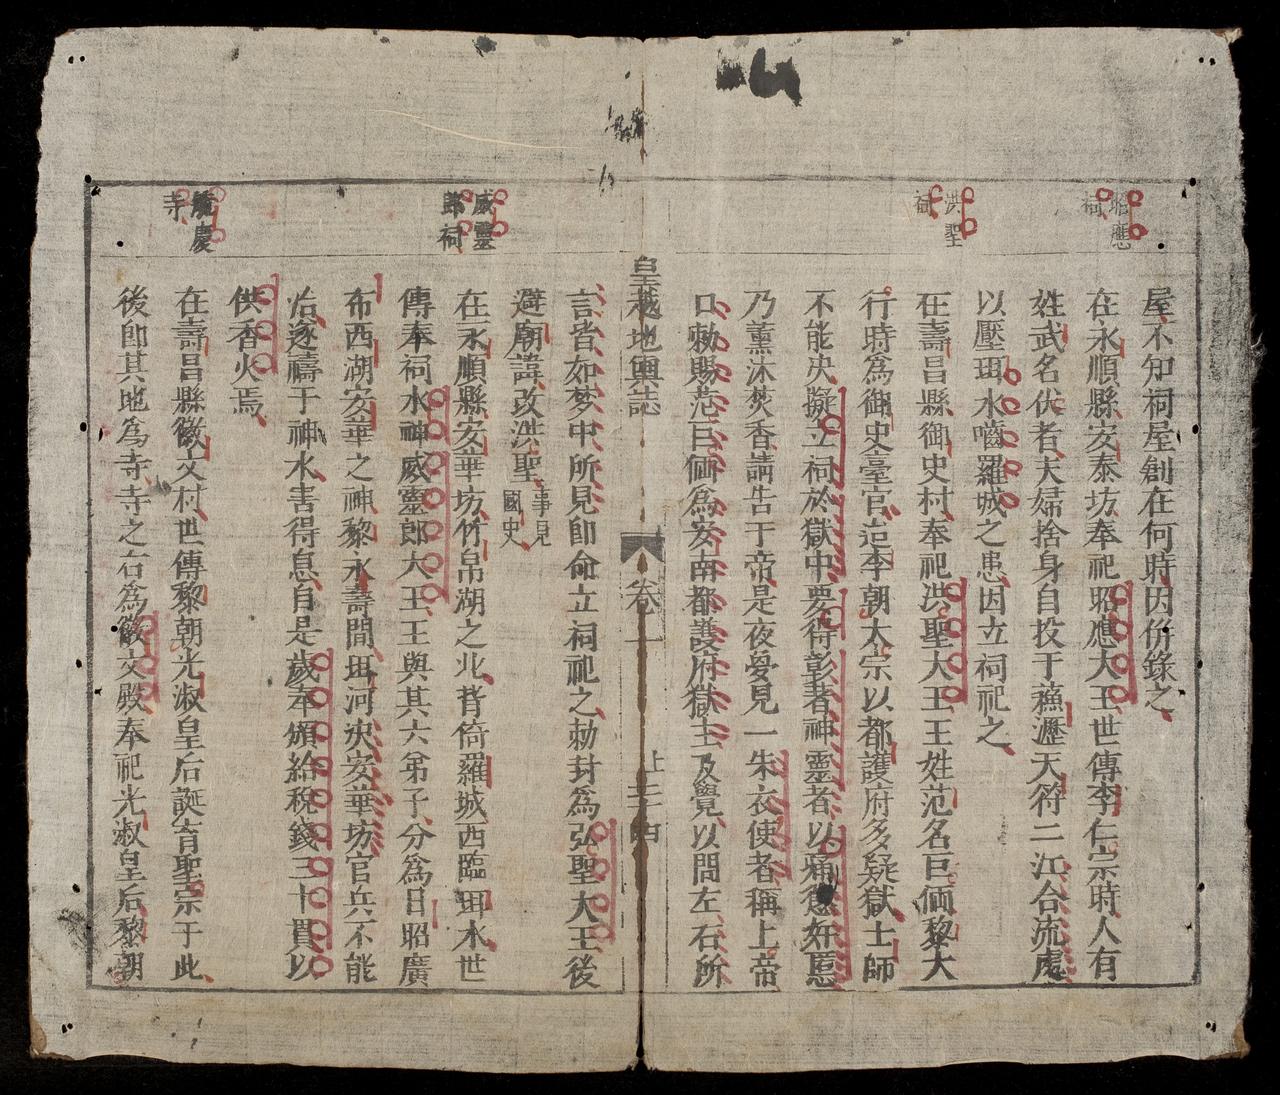 昭應
祠
洪聖
祠
屋不知祠屋創在何時因併錄之
在永順縣安泰坊奉祀昭應大王世傳李仁宗時人有
姓武名伏者夫婦捨身自投于蘓瀝天符二江合流處
以壓珥水嚙羅城之患因立祠祀之
在壽昌縣御史村奉祀洪聖大王王姓范名巨倆黎大
行時爲御史臺官迨李朝太宗以都護府多疑獄士師
不能決擬立祠於獄中要得彰著神靈者以痛懲奸慝
乃薰沐焚香請告于帝是夜夢見一朱衣使者稱上帝
口勅賜范巨倆爲安南都護府獄主及覺以問左右所
皇越地輿誌
卷一
上三十四
威靈
郎祠
慶
寺
言皆如梦中所見即命立祠祀之勅封爲弘聖大王後
避廟諱改洪聖事見
國史
在永順縣安華坊竹帛湖之北背倚羅城西臨珥水世
傳奉祠水神威靈郎大王王與其六弟子分爲日昭廣
布西湖安華之神黎永壽間珥河決安華坊官兵不能
治逐禱于神水害得息自是歲奉頒給稅錢三十貫以
供香火焉
在壽昌縣徽文村世傳黎朝光淑皇后誕育聖宗于此
後即其地爲寺寺之右爲徽文殿奉祀光淑皇后黎朝